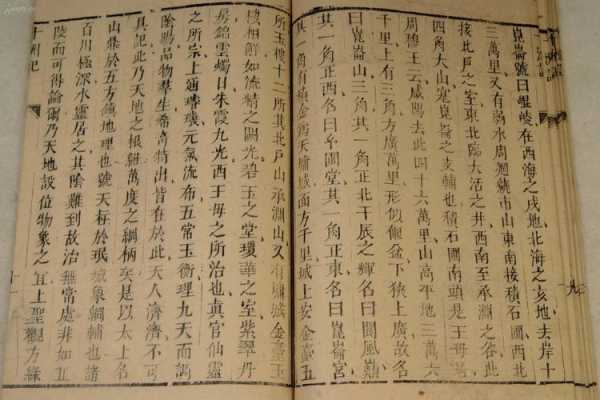 崑崙號曰崐崚在西海之戌地北海之亥地去岸十
三萬里又有弱水周迴繞帀山東南接積石圃西北
接北戶之室東北臨大活之井西南至承淵之谷此
四角大山寔崑崙之支輔也積石圃南頭是王母告
周穆王云咸陽去此四十六萬里山高平地三萬六
千里上有三角方廣萬里形似偃盆下狹上廣故名
曰崑崙山三角其一角正北干辰之輝名曰閬風巔
其一角正西名曰玄圃堂其一角正東名曰崑崙宮
其一角有積金為天墉城面方千里城上安金臺五
所玉樓十二所其北戶山承淵山又有墉城金臺玉
樓相鮮如流精之闕光碧玉之堂瓊華之室紫翠丹
房錦雲燭日朱霞九光西王母之所治也眞官仙靈
之所宗上通璿璣元氣流布五常玉衡理九天而調
陰陽品物羣生希奇特出皆在於此天人濟濟不可
具記此乃天地之根紐萬度之綱柄矣是以太上名
山鼎於五方鎮地理也號天柱於珉城象綱輔也諸
百川極深水靈居之其陰難到故治無常處非如丘
陵而可得論爾乃天地設位物象之宜上聖觀方緣
十洲記